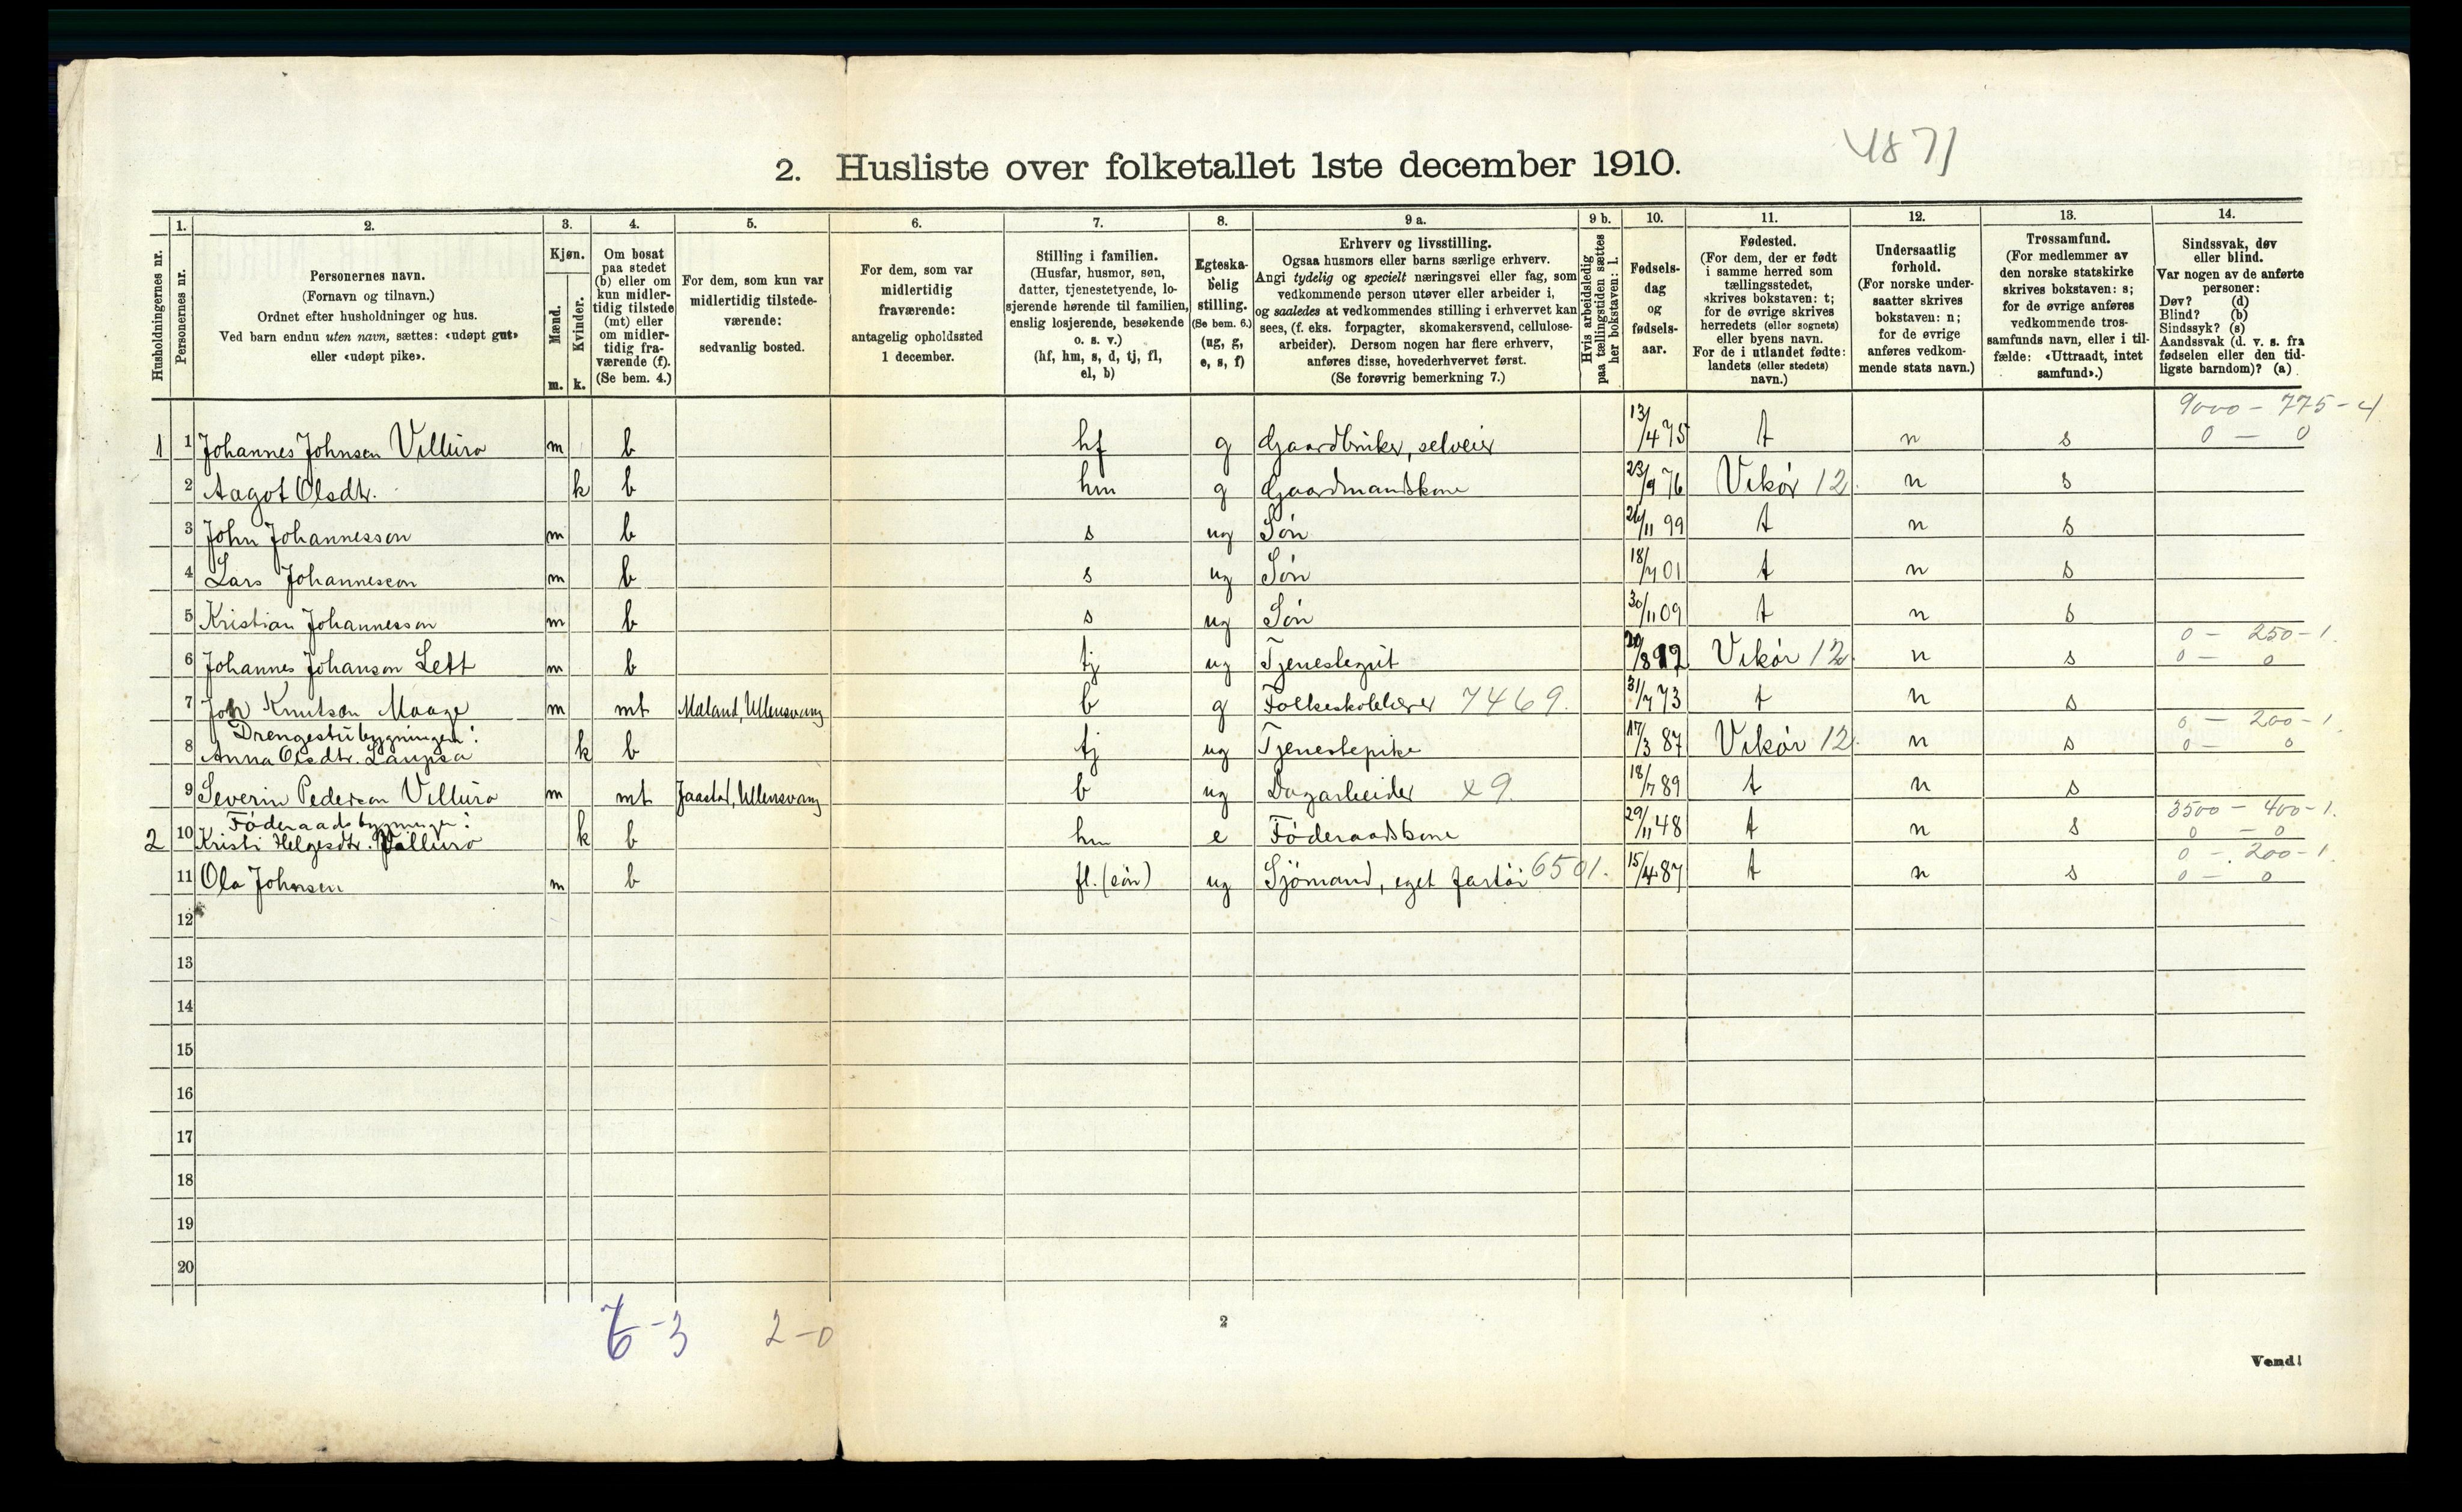 4871
2. Husliste over folketallet 1ste december 1910.
Husholdningernes nr.
1. Personernes nr.
2. Personernes navn.
(Fornavn og tilnavn.)
Ordnet efter husholdninger og hus.
Ved barn endnu uten navn, sættes: «udøpt gut»
eller «udøpt pike».
3. Kjøn.
Mænd. m.
Kvinder. k.
4. Om bosat
paa stedet
(b) eller om
kun midler-
tidig tilstede
(mt) eller
om midler-
tidig fra-
værende (f).
(Se bem. 4.)
5. For dem, som kun var
midlertidig tilstede-
værende:
sedvanlig bosted.
6. For dem, som var
midlertidig
fraværende:
antagelig opholdssted
1 december.
7. Stilling i familien.
(Husfar, husmor, søn,
datter, tjenestetyende, lo-
sjerende hørende til familien,
enslig losjerende, besøkende
o. s. v.)
(hf, hm, s, d, tj, fl,
el, b)
8. Egteska-
belig
stilling.
(Se bem. 6.)
(ug, g,
e, s, f)
9 a. Erhverv og livsstilling.
Ogsaa husmors eller barns særlige erhverv.
Angi tydelig og specielt næringsvei eller fag, som
vedkommende person utøver eller arbeider i,
og saaledes at vedkommendes stilling i erhvervet kan
sees, (f. eks. forpagter, skomakersvend, cellulose-
arbeider). Dersom nogen har flere erhverv,
anføres disse, hovederhvervet først.
(Se forøvrig bemerkning 7.)
9 b. Hvis arbeidsledig
paa tællingstiden sættes
her bokstaven: l.
10. Fødsels-
dag
og
fødsels-
aar.
11. Fødested.
(For dem, der er født
i samme herred som
tællingsstedet,
skrives bokstaven: t;
for de øvrige skrives
herredets (eller sognets)
eller byens navn.
For de i utlandet fødte:
landets (eller stedets)
navn.)
12. Undersaatlig
forhold.
(For norske under-
saatter skrives
bokstaven: n;
for de øvrige
anføres vedkom-
mende stats navn.)
13. Trossamfund.
(For medlemmer av
den norske statskirke
skrives bokstaven: s;
for de øvrige anføres
vedkommende tros-
samfunds navn, eller i til-
fælde: «Uttraadt, intet
samfund».)
14. Sindssvak, døv
eller blind.
Var nogen av de anførte
personer:
Døv? (d)
Blind? (b)
Sindssyk? (s)
Aandssvak (d. v. s. fra
fødselen eller den tid-
ligste barndom)? (a)
9000 - 775 - 4
1 1 Johannes Johnsen Villuro m b hf g Gaardbruker, selveier 13/4 75 t n s 0 - 0
2 Aagot Olsdtr. k b hm g Gaardmandskone 23/9 76 Vikør 12 n s
3 John Johannesson m b s ug Søn 26/11 99 t n s
4 Lars Johannesson m b s ug Søn 18/7 01 t n s
5 Kristian Johannesson m b s ug Søn 30/11 09 t n s
0 - 250 - 1.
6 Johannes Johanson Lett m b tj ug Tjenestegut 20/8 92 Vikør 12 n s 0 - 0
7 Jon Knutson Maage m mt Maeland, Ullensvang b g Folkeskolelærer 7469. 31/7 73 t n s
Drengestubygningen: 0 - 200 - 1
8 Anna Olsdtr. Laupsa k b tj ug Tjenestepike 17/3 87 Vikør 12. n s 0 - 0
9 Severin Pederson Villuro m mt Jaastad, Ullensvang b ug Dagarbeider x9. 18/7 89 t n s
Føderaadsbygningen: 3500 - 400 - 1.
2 10 Kristi Helgesdtr. Villuro k b hm e Føderaadskone 29/11 48 t n s 0 - 0
0 - 200 - 1.
11 Ola Johnsen m b fl. (søn) ug Sjømand, eget fartøi 6501. 15/4 87 t n s 0 - 0
12
13
14
15
16
17
18
19
20
6-3 2-0
2
Vend!